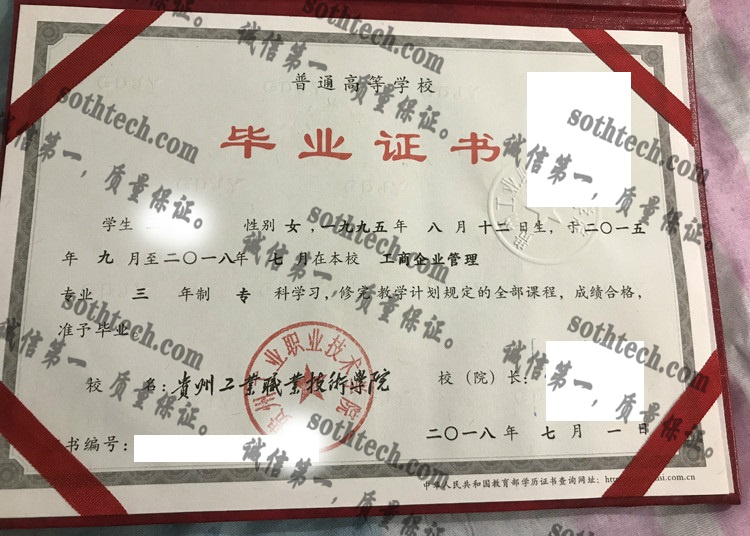 普通高等学校
毕业证书
学生 性别 女，一九九五年 八 月 十二 日生，于二〇一五
年 九 月至二〇一八年 七 月在本校 工商企业管理
专业 三 年制 专 科学习，修完教学计划规定的全部课程，成绩合格，
准予毕业。
校 名：贵州工業職業技術學院 校（院）长：
书编号：
二〇一八年 七 月 一 日
中华人民共和国教育部学历证书查询网址：
贵州工业职业技术学院
sothtech.com
诚信第一，质量保证。
sothtech.com
诚信第一，质量保证。
sothtech.com
诚信第一，质量保证。
sothtech.com
诚信第一，质量保证。
sothtech.com
诚信第一，质量保证。
sothtech.com
诚信第一，质量保证。
sothtech.com
诚信第一，质量保证。
sothtech.com
诚信第一，质量保证。